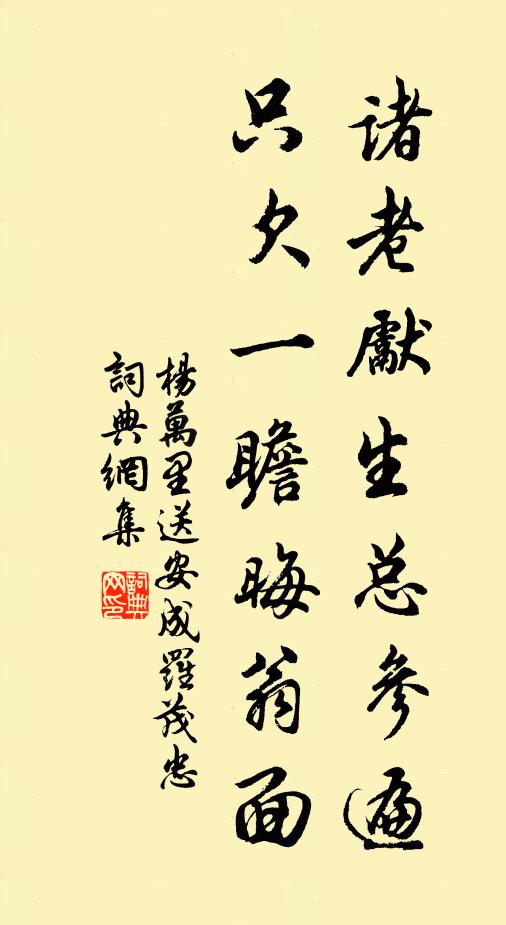 诸老献生总参遍
只欠一瞻晦翁面
楊萬里送安成羅茂忠
詞典網集
詞典
网印